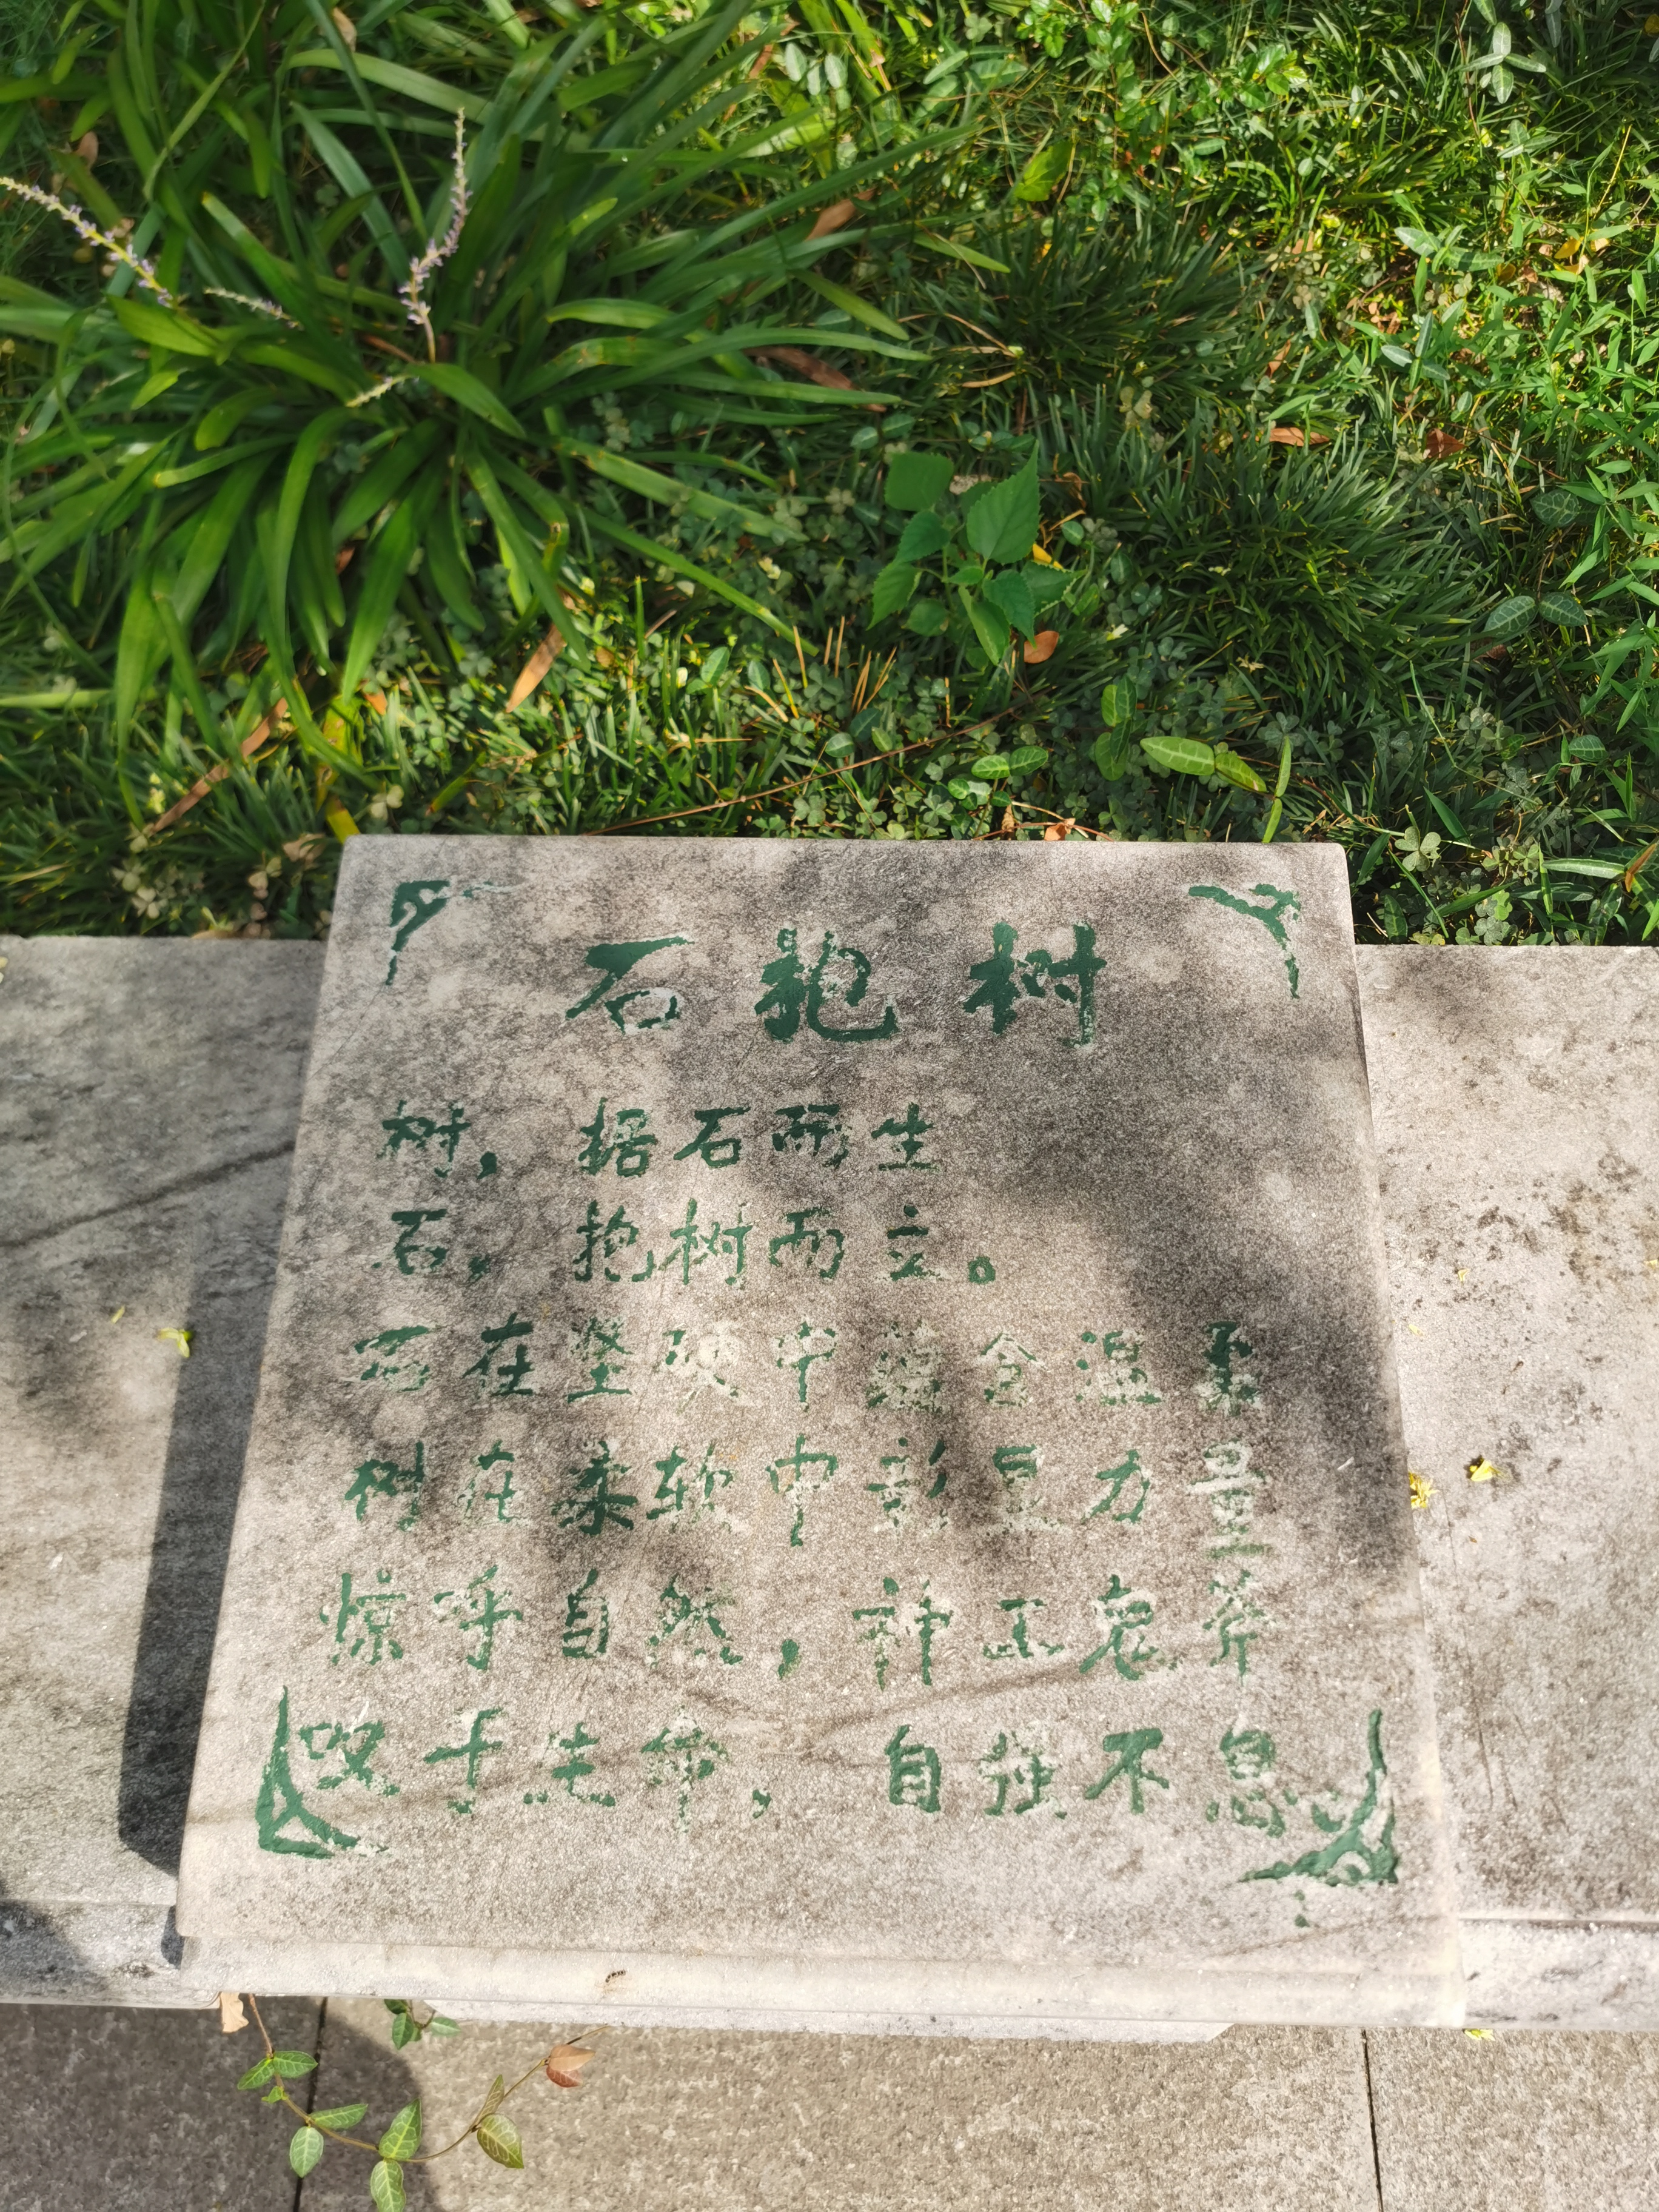 石抱树
树，据石而生
石，抱树而立。
石在坚硬中蕴含温柔
树在柔软中彰显力量
惊呼自然，神工鬼斧
叹于生命，自强不息